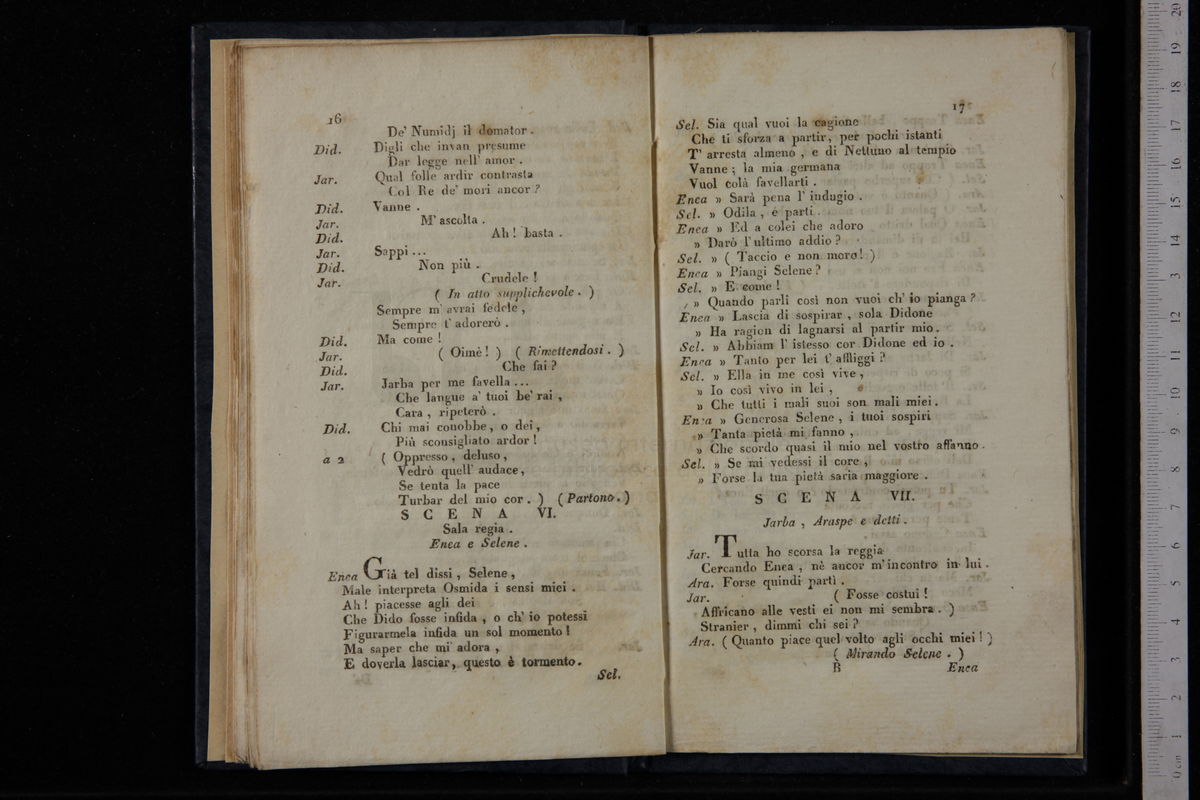 16
De' Numidj il domator .
Did. Digli che invan presume
Dar legge nell' amor .
Jar. Qual folle ardir contrasta
Col Re de' mori ancor ?
Did. Vanne .
Jar. M' ascolta .
Did. Ah ! basta .
Jar. Sappi ...
Did. Non più .
Jar. Crudele !
( In atto supplichevole . )
Sempre m' avrai fedele ,
Sempre t' adorerò .
Did. Ma come !
Jar. ( Oimè ! ) ( Rimettendosi . )
Did. Che fai ?
Jar. Jarba per me favella ...
Che langue a' tuoi be' rai ,
Cara , ripeterò .
Did. Chi mai conobbe , o dei ,
Più sconsigliato ardor !
a 2 ( Oppresso , deluso ,
Vedrò quell' audace ,
Se tenta la pace
Turbar del mio cor . ) ( Partono . )
SCENA VI.
Sala regia .
Enea e Selene .
Enea Già tel dissi , Selene ,
Male interpreta Osmida i sensi miei .
Ah ! piacesse agli dei
Che Dido fosse infida , o ch' io potessi
Figurarmela infida un sol momento !
Ma saper che mi adora ,
E doverla lasciar , questo è tormento .
Sel.
17
Sel. Sia qual vuoi la cagione
Che ti sforza a partir , per pochi istanti
T' arresta almeno , e di Nettuno al tempio
Vanne ; la mia germana
Vuol colà favellarti .
Enea » Sarà pena l' indugio .
Sel. » Odila , e parti .
Enea » Ed a colei che adoro
» Darò l' ultimo addio ?
Sel. » ( Taccio e non moro ! )
Enea » Piangi Selene ?
Sel. » E come !
» Quando parli così non vuoi ch' io pianga ?
Enea » Lascia di sospirar , sola Didone
» Ha ragion di lagnarsi al partir mio .
Sel. » Abbiam l' istesso cor Didone ed io .
Enea » Tanto per lei t' affliggi ?
Sel. » Ella in me così vive ,
» Io così vivo in lei ,
» Che tutti i mali suoi son mali miei .
Enea » Generosa Selene , i tuoi sospiri
» Tanta pietà mi fanno ,
» Che scordo quasi il mio nel vostro affanno .
Sel. » Se mi vedessi il core ,
» Forse la tua pietà saria maggiore .
SCENA VII.
Jarba , Araspe e detti .
Jar. Tutta ho scorsa la reggia
Cercando Enea , nè ancor m' incontro in lui .
Ara. Forse quindi partì .
Jar. ( Fosse costui !
Affricano alle vesti ei non mi sembra . )
Stranier , dimmi chi sei ?
Ara. ( Quanto piace quel volto agli occhi miei ! )
( Mirando Selene . )
B Enea
0 cm 1 2 3 4 5 6 7 8 9 10 11 12 13 14 15 16 17 18 19 20